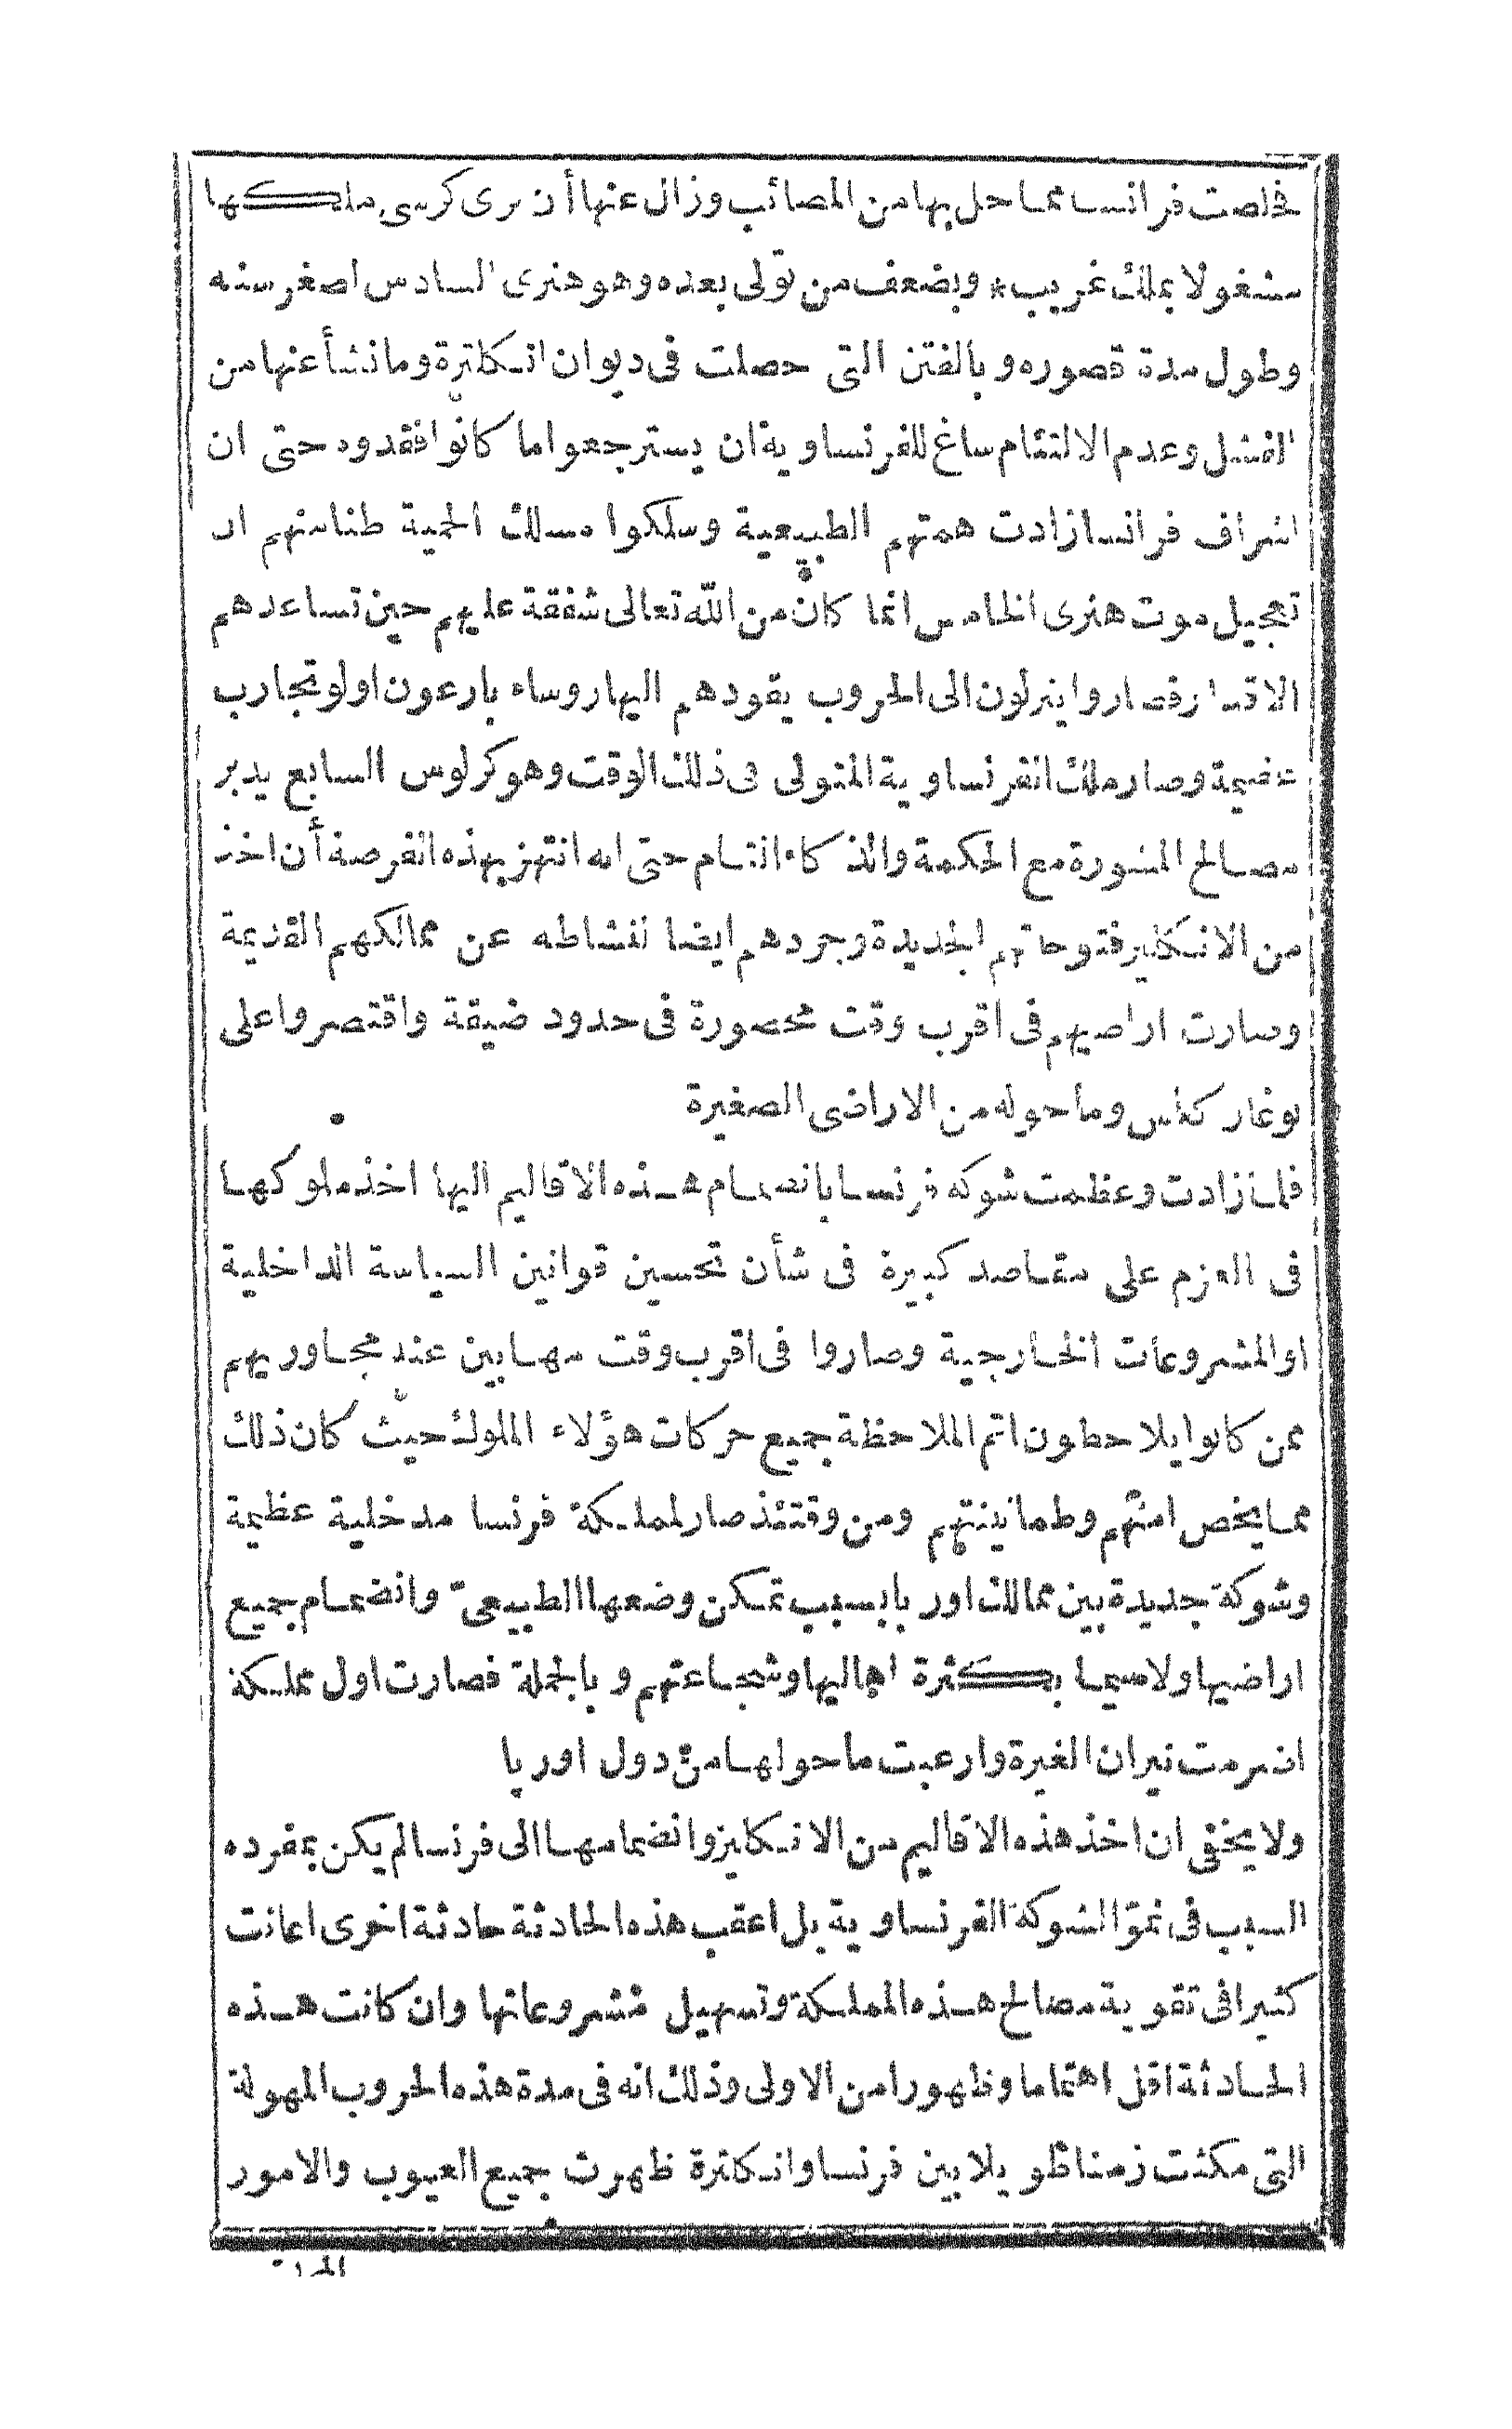 فخلصت فرانسا مما حل بها من المصائب وزال عنها أن يرى كرسى ملكها
مشغولا بملك غريب * وبضعف من تولى بعده وهو هنرى السادس لصغر سنه
وطول مدة قصوره وبالفتن التى حصلت فى ديوان انكلترة وما نشأ عنها من
الفشل وعدم الالتئام ساغ للفرنساوية ان يسترجعوا ما كانوا فقدوه حتى ان
اشراف فرانسا زادت همتهم الطبيعية وسلكوا مسالك الحمية ظنا منهم ان
تعجيل موت هنرى الخامس انما كان من الله تعالى شفقة عليهم حين تساعدهم
الاقدار فصاروا ينزلون الى الحروب يقودهم اليها روساء بارعون اولو تجارب
عظيمة وصار ملك الفرنساوية المتولى فى ذلك الوقت وهو كرلوس السابع يدبر
مصالح المشورة مع الحكمة والذكاء التام حتى انه انتهز بهذه الفرصة أن اخذ
من الانكليز فتوحاتهم الجديدة وجردهم ايضا لنشاطه عن ممالكهم القديمة
وصارت اراضيهم فى اقرب وقت محصورة فى حدود ضيقة واقتصروا على
بوغاز كاس وما حوله من الاراضى الصغيرة
فلما زادت وعظمت شوكة فرنسا بانضمام هذه الاقاليم اليها اخذ ملوكها
فى العزم على مقاصد كبيرة فى شأن تحسين قوانين السياسة الداخلية
او المشروعات الخارجية وصاروا فى اقرب وقت مهابين عند مجاوريهم
ممن كانوا يلاحظون اتم الملاحظة جميع حركات هؤلاء الملوك حيث كان ذلك
مما يخص امنتهم وطمانينتهم ومن وقتئذ صار لمملكة فرنسا مدخلية عظيمة
وشوكة جديدة بين ممالك اوربا بسبب تمكن وضعها الطبيعىّ وانضمام جميع
اراضيها ولاسيما بكثرة اهاليها وشجاعتهم وبالجملة فصارت اول مملكة
اضرمت نيران الغيرة وارعبت ما حولها من دول اوربا
ولا يخفى ان اخذ هذه الاقاليم من الانكليز وانضمامها الى فرنسا لم يكن بمفرده
السبب فى نموّ الشوكة الفرنساوية بل اعقب هذه الحادثة حادثة اخرى اعانت
كثيرا فى تقوية مصالح هذه المملكة وتسهيل مشروعاتها وان كانت هذه
الحادثة اقل اهتماما وظهورا من الاولى وذلك انه فى مدة هذه الحروب المهولة
التى مكثت زمنا طويلا بين فرنسا وانكلترة ظهرت جميع العيوب والامور